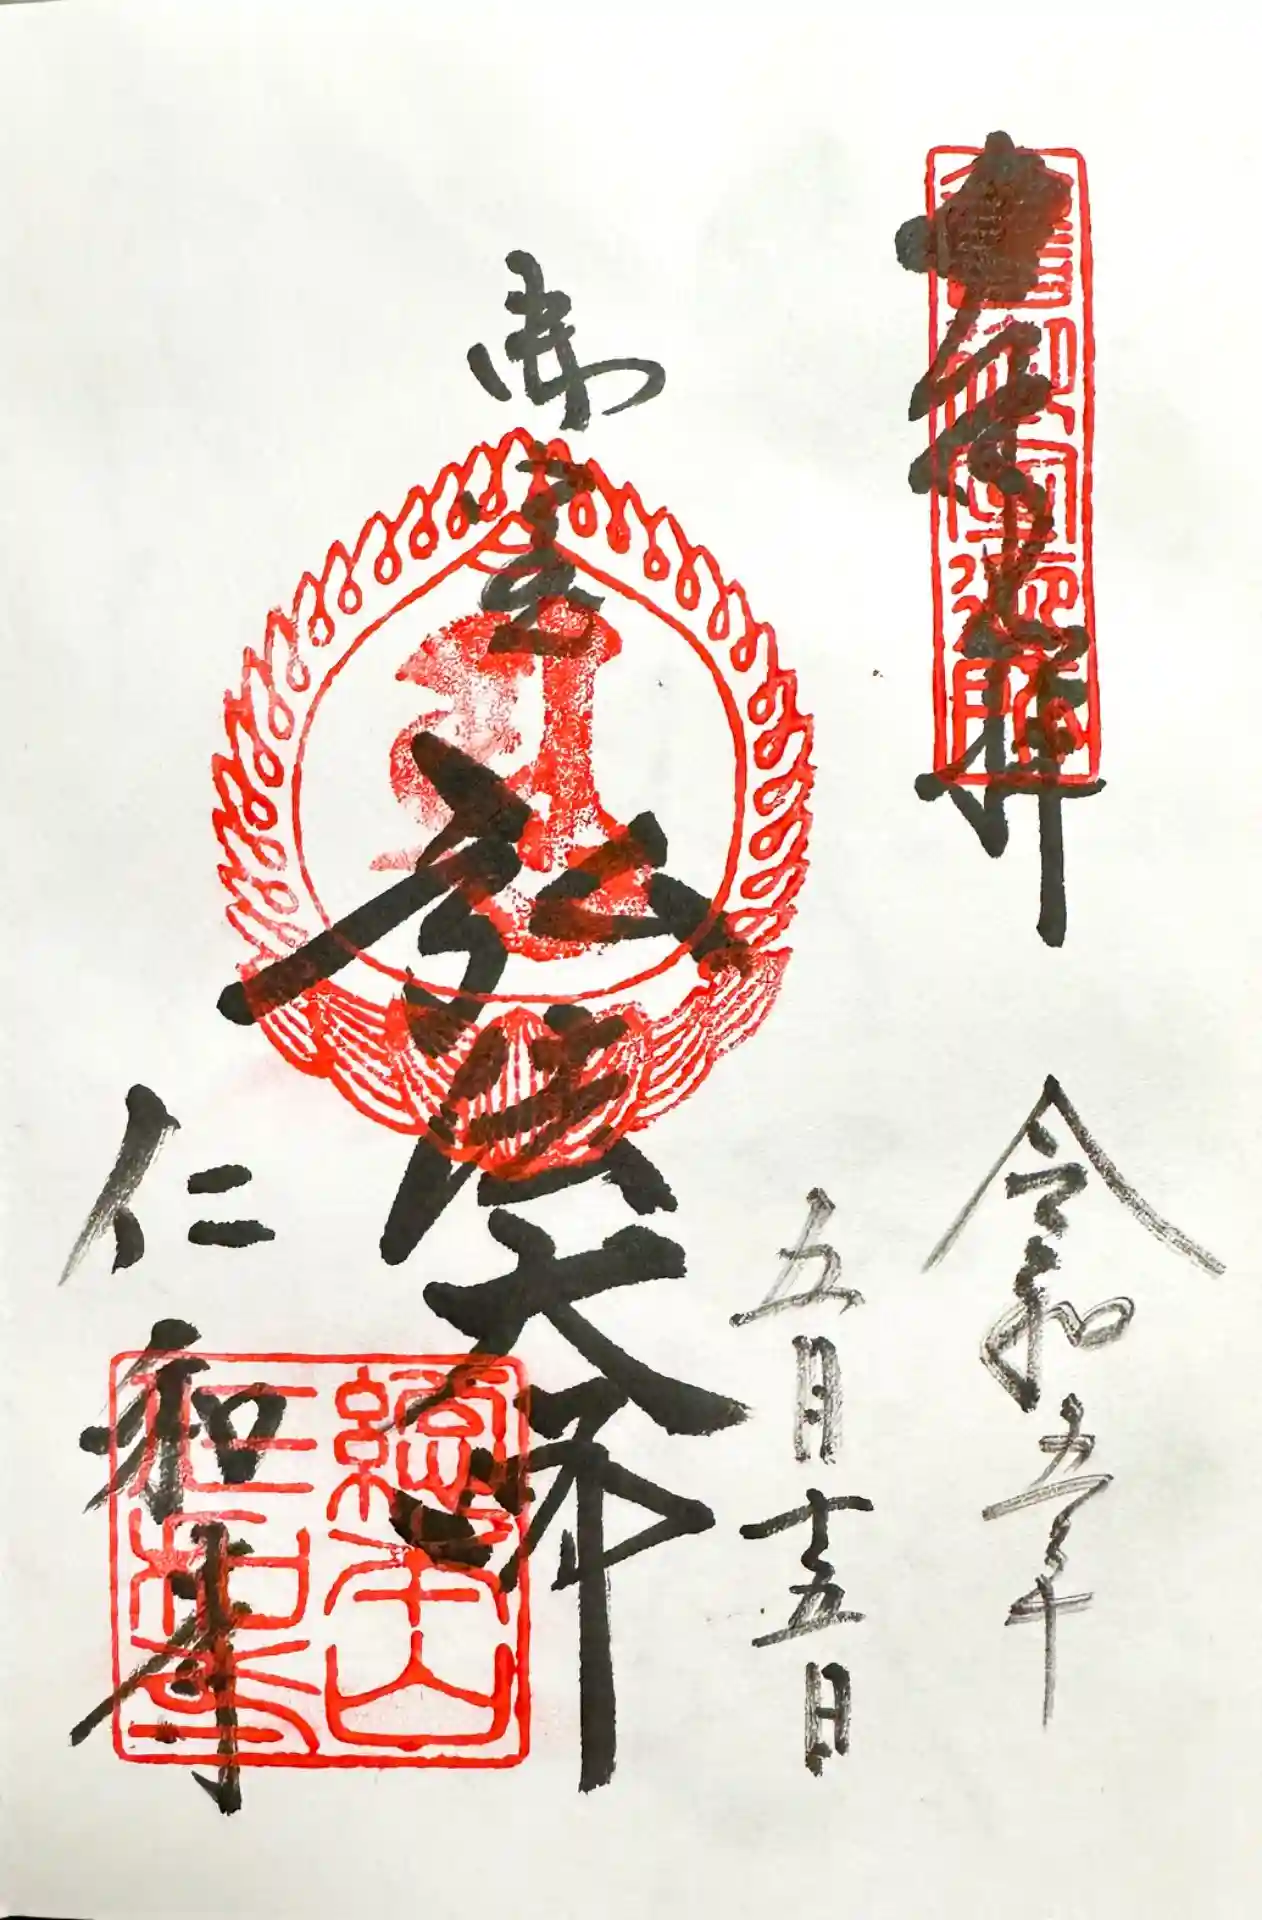 令和五年
五月十五日
御室
弘法大師
總本山
仁和寺
仁和寺